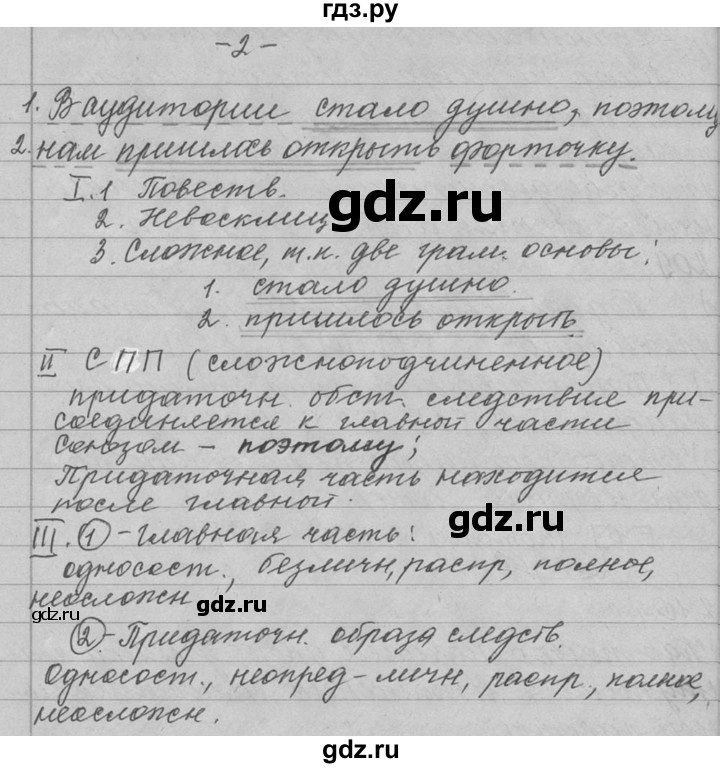 гдз.ру
-2-
1. В аудитории стало душно, поэтому
2. нам пришлось открыть форточку.
I. 1 Повеств.
2. Невосклиц
gdz.ru
3. Сложное, т.к. две грам. основы:
1. стало душно.
2. пришлось открыть
II СПП (сложноподчиненное)
придаточн. обст. следствия при-
соединяется к главной части
союзом - поэтому;
Придаточная часть находится
после главной.
gdz.ru
III. 1 - главная часть:
односост., безличн, распр, полное,
неосложн
gdz.ru
gdz.ru
2 - Придаточн. образа следств.
Односост., неопред-личн, распр., полное,
неосложн.
gdz.ru